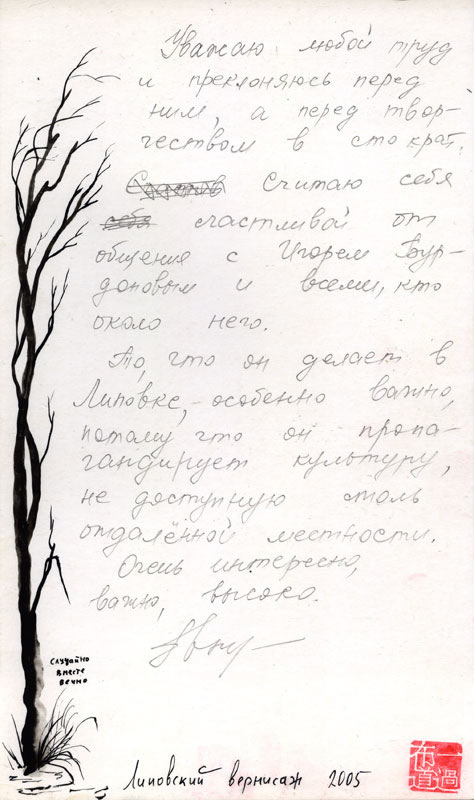 Уважаю любой труд
и преклоняюсь перед
ним, а перед твор-
чеством в сто крат.
Считаю себя
себя счастливой от
общения с Игорем Бур-
доновым и всеми, кто
около него.
То, что он делает в
Липовке, - особенно важно,
потому что он пропа-
гандирует культуру,
не доступную столь
отдалённой местности.
Очень интересно,
важно, высоко.
случайно
вместе
вечно
Липовский вернисаж 2005
一過
布道